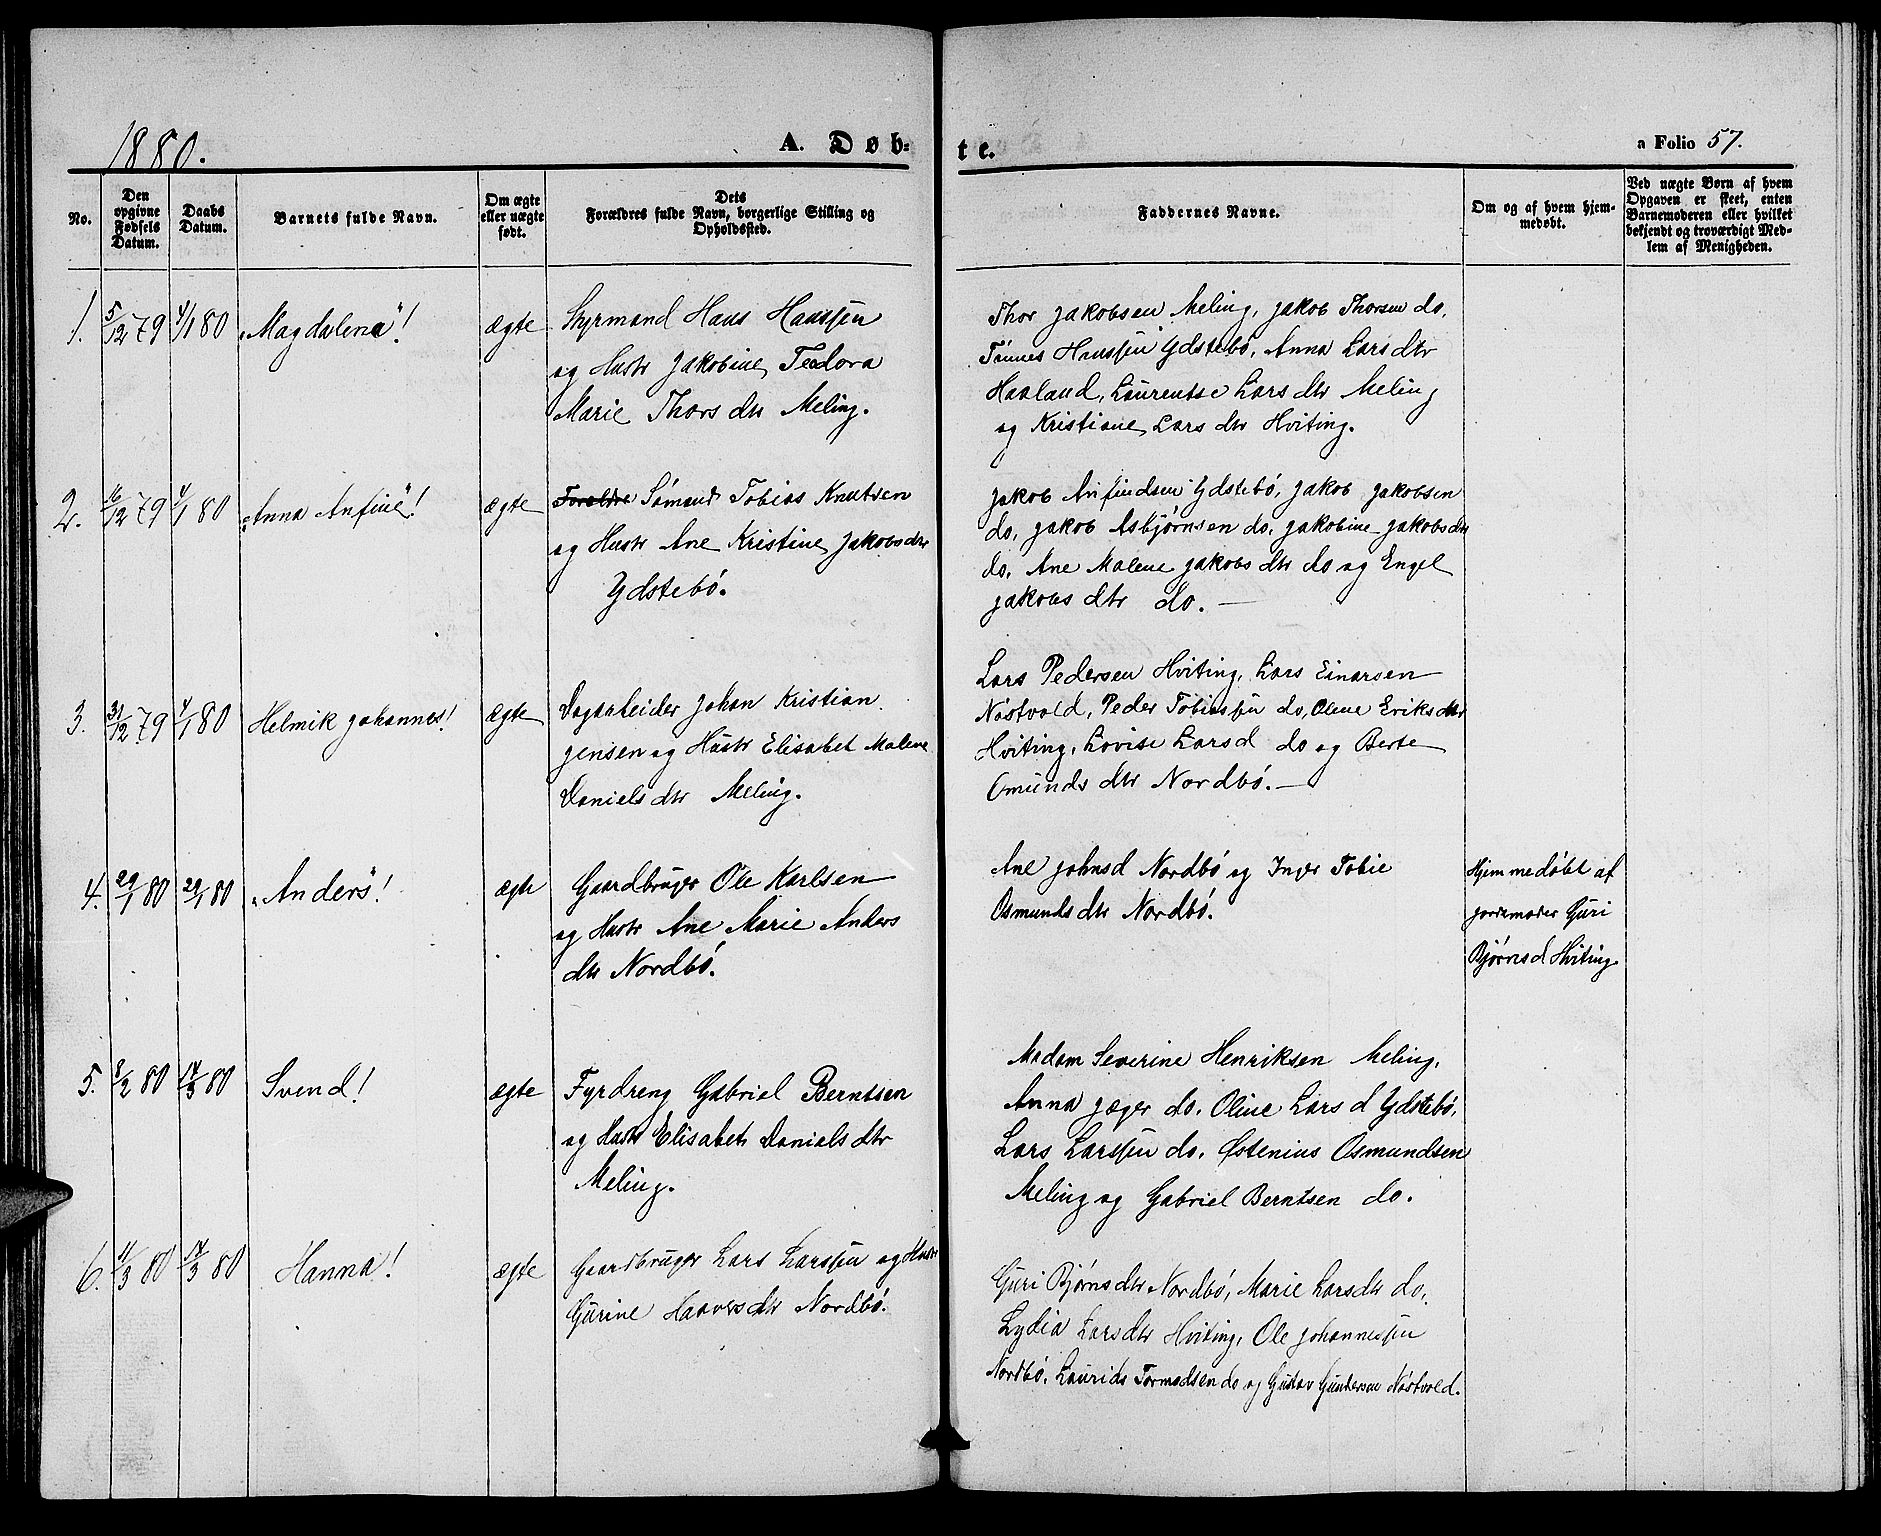 1880.
A. Døb=
te.
a Folio 57.
No.
Den opgivne Fødsels Datum.
Daabs Datum.
Barnets fulde Navn.
Om ægte eller uægte født.
Dets Forældres fulde Navn, borgerlige Stilling og Opholdssted.
Faddernes Navne.
Om og af hvem hjem-
medøbt.
Ved uægte Børn af hvem
Opgaven er skeet, enten
Barnemoderen eller hvilket
bekjendt og troværdigt Med-
lem af Menigheden.
1. 5/12 79 4/1 80 „Magdalena"! ægte
Styrmand Hans Hanssen
og Hustr Jakobine Teodora
Marie Thors dtr Meling.
Thor Jakobsen Meling, Jakob Thorsen do,
Tönnes Hanssen Ydstebö, Anna Lars dtr
Haaland, Laurentse Lars dtr Meling
og Kristiane Lars dtr Hviting.
2. 16/12 79 4/1 80 „Anna Anfine"! ægte
Forældre Sömand Tobias Knutsen
og Hustr Ane Kristine Jakobsdtr
Ydstebö.
Jakob Anfindsen Ydstebö, Jakob Jakobsen
do, Jakob Asbjørnsen do, Jakobine Jakobsdtr
do, Ane Malene Jakobs dtr do og Engel
Jakobs dtr do. —
3. 31/12 79 4/1 80 Helmik Johannes! ægte
Dagarbeider Johan Kristian
Jensen og Hustr Elisabet Malene
Daniels dtr Meling.
Lars Pedersen Hviting, Lars Einarsen
Nöstvold, Peder Tobiassen do, Olene Eriks dtr
Hviting, Lovise Larsd do og Berte
Omunds dtr Nordbö. —
4. 29/1 80 29/1 80 „Anders"! ægte
Gaardbruger Ole Karlsen
og Hustr Ane Marie Anders
dtr Nordbö.
Ane Johnsd Nordbö og Inger Tobie
Osmunds dtr Nordbö.
Hjemmedöbt af
jordemoder Guri
Bjørnsd Hviting
5. 8/2 80 14/3 80 Svend! ægte
Fyrdreng Gabriel Berntsen
og Hustr Elisabet Daniels dtr
Meling.
Madam Severine Henriksen Meling,
Anna Jæger do, Oline Lars d Ydstebö,
Lars Larssen do, Østenius Osmundsen
Meling og Gabriel Berntsen do.
6. 11/3 80 14/3 80 Hanna! ægte
Gaardbruger Lars Larssen og Hustr
Gurine Haavers dtr Nordbö.
Guri Bjørns dtr Nordbö, Marie Larsdtr do,
Lydia Larsdtr Hviting, Ole Johannessen
Nordbö, Laurids Tormodsen do og Gustav Gundersen Nöstvold.